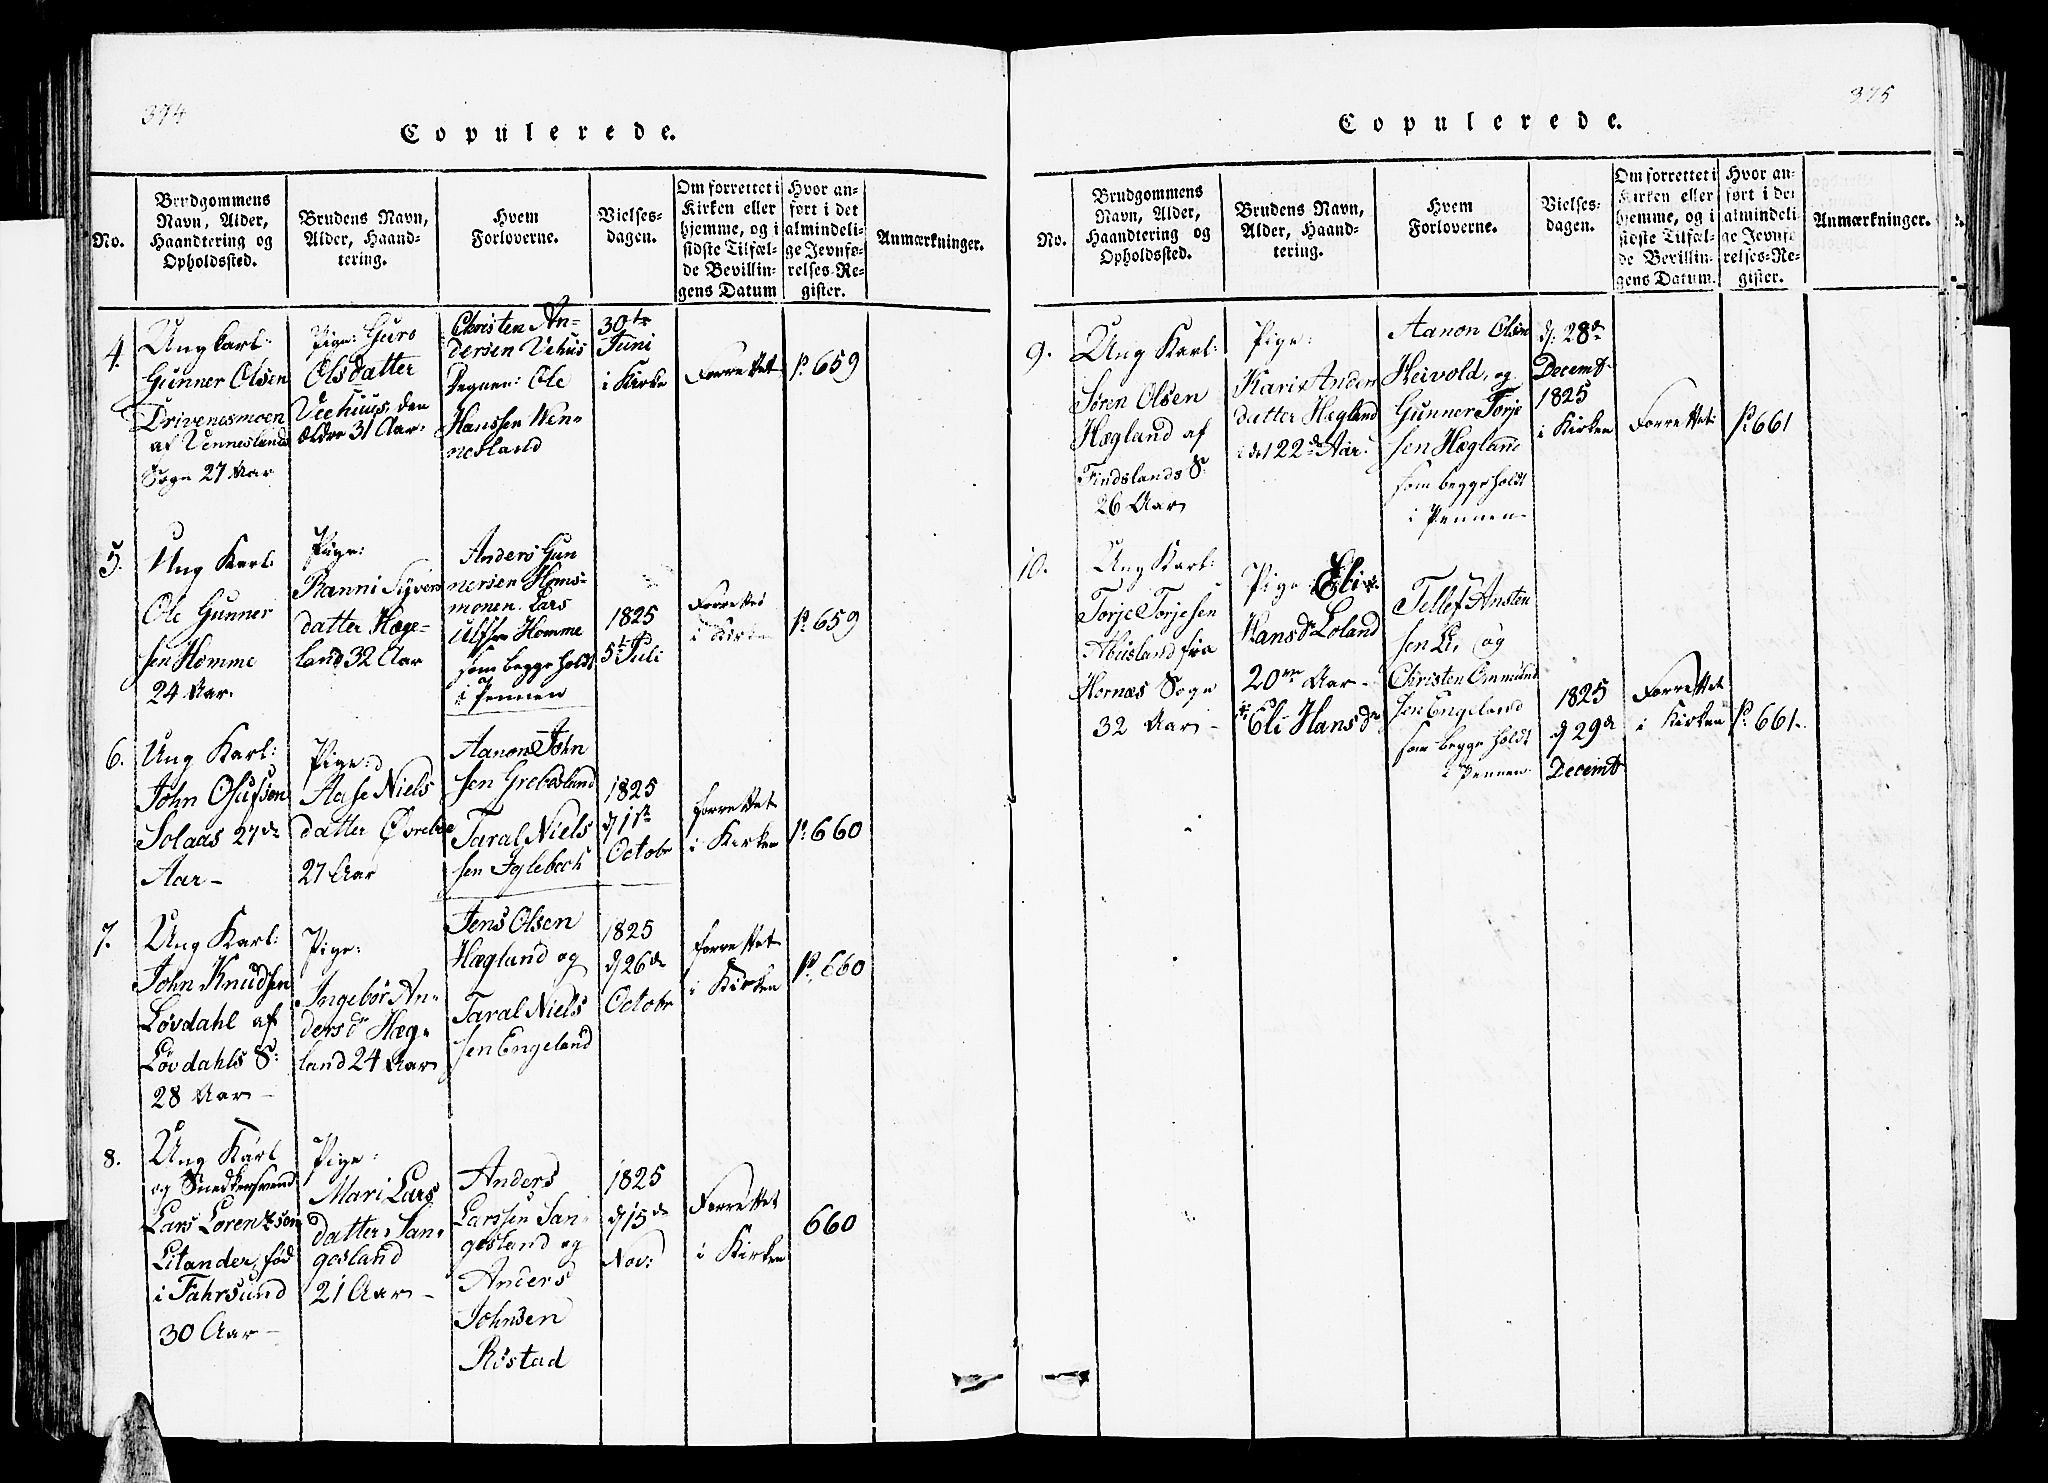 374
Copulerede.
No.
Brudgommens
Navn, Alder,
Haandtering og
Opholdssted.
Brudens Navn,
Alder, Haand-
tering.
Hvem
Forloverne.
Vielses-
dagen.
Om forrettet i
Kirken eller
hjemme, og i
sidste Tilfæl-
de Bevillin-
gens Datum
Hvor an-
ført i det
almindeli-
ge Jevnfø-
relses-Re-
gister.
Anmærkninger.
4.
Ung karl:
Gunner Olsen
Drivenesmoen
af Venneslands
Sogn 27 Aar
Pige: Guro
Olsdatter
Veehuus, den
ældre 31 Aar.
Christen An-
dersen Vehus
Degnen: Ole
Hanssen Wen-
nesland
30te
Juni
i Kirke
Forrettet
P. 659
5.
Ung Karl
Ole Gunner
sen Homme
24 Aar.
Pige:
Ranni Syvers
datter Hæge-
land 32 Aar
Anders Gun
nersen Homs-
monen. Lars
Ulfsen Homme
som begge holdt
i Pennen
1825
5te Juli
Forrettet
i Kirken
P. 659
6.
Ung Karl:
John Olufsen
Solaas 27de
Aar-
Pige:
Aase Niels
datter Øvrebøe
27 Aar
Aanon John
sen Grebesland
Taral Niels
sen Fyglebech
1825
d 1ste
Octobr
forrettet
i Kirken
P. 660
7.
Ung Karl:
John Knudsen
Løvdahl af
Løvdahls S:
28 Aar -
Pige:
Ingebor An-
dersdr Hæg-
land 24 Aar
Jens Olsen
Hægland og
Taral Niels
sen Engeland
1825
d 26de
Octobr
forrettet
i Kirken
P. 660
8.
Ung Karl
og Snedkersvend
Lars Lorentzson
Litander, fød
i Fahrsund
30 Aar -
Pige:
Mari Lars
datter San-
gesland
21 Aar -
Anders
Larssen San-
gesland og
Anders
Johnsen
Røstad
1825
d 15de
Nov:
Forrettet
i Kirken
660
375
Copulerede.
No.
Brudgommens
Navn, Alder,
Haandtering og
Opholdssted.
Brudens Navn,
Alder, Haand-
tering.
Hvem
Forloverne.
Vielses-
dagen.
Om forrettet i
Kirken eller
hjemme, og i
sidste Tilfæl-
de Bevillin-
gens Datum.
Hvor an-
ført i det
almindeli-
ge Jevnfø-
relses-Re-
gister.
Anmærkninger.
9.
Ung Karl:
Søren Olsen
Hægland af
Findslands S:
26 Aar
Pige:
Kari Anders
datter Hægland
i det 22de Aar.
Aanon Olsen
Heivold, og
Gunner Torje
sen Hægland
som begge holdt
i Pennen
d: 28de
Decembr
1825
i Kirken
Forrettet
P. 661
10.
Ung Karl:
Torje Torjesen
Abusland fra
Hornæs Sogn
32 Aar -
Pige: Eli
Hansdr Loland
20 Aar -
Eli Hansdr
Tellef Ansten
sen Li, og
Christen Ommund
sen Engeland
som begge holdt
i Pennen
1825
d 29de
Decembr
Forrettet
i Kirken
P. 661.